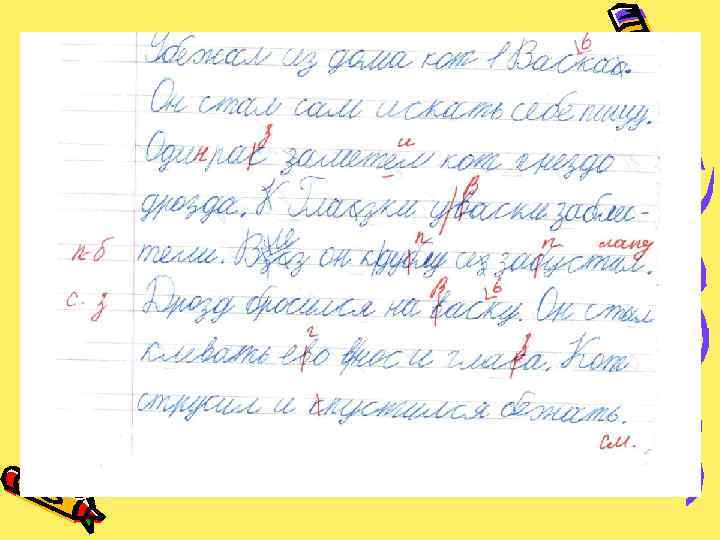 Убежал из дома кот Васкаа.
Он стал сам искать себе пищу.
Одинрас заметем кот гнездо
дрозда. К Глазки уваски заблис-
тели. Взаз он из забустил.
Дрозд бросился на васку. Он стал
клевать ево внос и гласа. Кот
струсил и пустился бежать.
ь
з
и
В
п-б
п
п
лапу
с-з
В
ь
г
з
см.